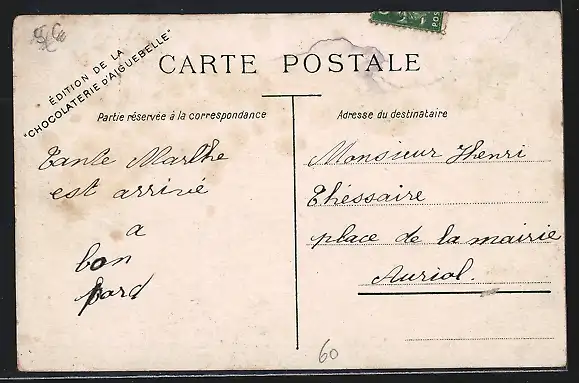 ÉDITION DE LA
"CHOCOLATERIE D'AIGUEBELLE"
CARTE POSTALE
Partie réservée à la correspondance
Tante Marthe
est arrivé
a
bon
pord
Adresse du destinataire
Monsieur Henri
Théssaire
place de la mairie
Auriol.
60